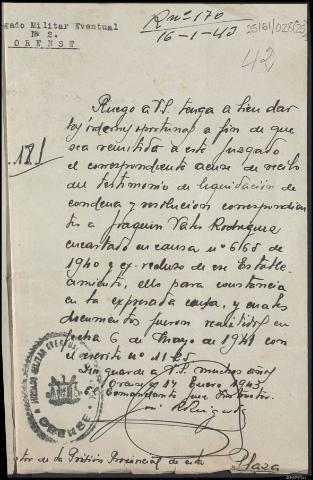 gado Militar Eventual
Nº 2.
ORENSE
R nº 170
16-1-43
25/61/028(25)
42
Ruego a V.S. tenga a bien dar
las órdenes oportunas a fin de que
sea remitido a este Juzgado
el correspondiente acuse de recibo
del testimonio de liquidación de
condena y resolución correspondien
te a Joaquin Vales Rodriguez
encartado en causa nº 6165 de
1940 y ex-recluso de ese Estable-
cimiento, ello para constancia
en la expresada causa, y cuales
documentos fueron remitidos en
fecha 6 de Mayo de 1941 con
el escrito nº 1125.
Dios guarde a V.S. muchos años
Orense 14 Enero 1943.
El Comandante Juez Instructor
JUZGADO MILITAR EVENTUAL
ORENSE
tor de la Prisión Provincial de esta Plaza